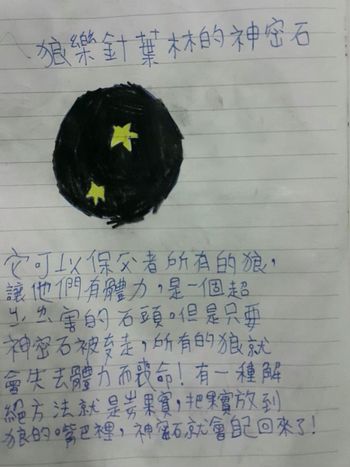 狼樂針葉林的神密石
它可以保父者所有的狼，
讓他們有體力，是一個超
害的石頭。但是只要
神密石被走，所有的狼就
會失去體力而喪命！有一種解
絕方法就是果實，把果實放到
狼的嘴巴裡，神密石就會自己回來了！